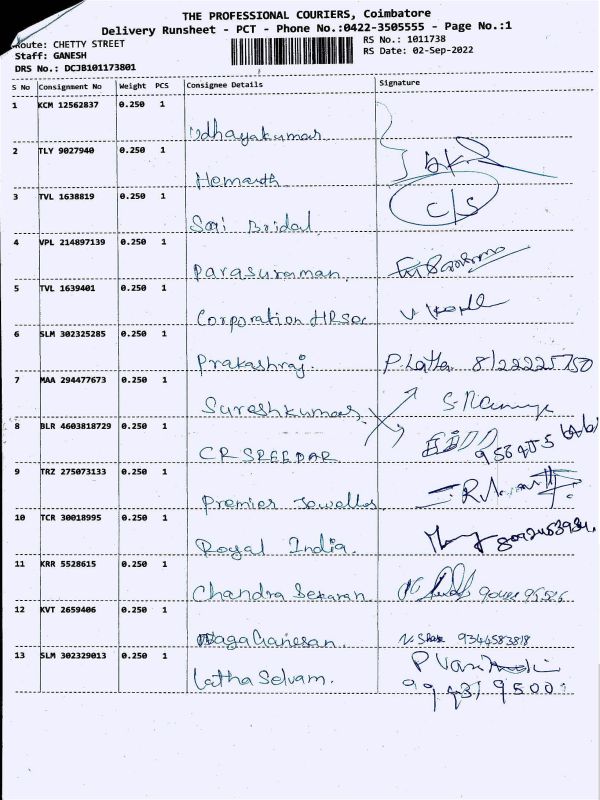 THE PROFESSIONAL COURIERS, Coimbatore
Delivery Runsheet - PCT - Phone No.:0422-3505555 - Page No.:1
Route: CHETTY STREET
RS No.: 1011738
Staff: GANESH
RS Date: 02-Sep-2022
DRS No.: DCJB101173801
S No Consignment No Weight PCS Consignee Details Signature
1 KCM 12562837 0.250 1
Udhayakumar
2 TLY 9027940 0.250 1
Hemanth
3 TVL 1638819 0.250 1
C/S
Sari Bridal
4 VPL 214897139 0.250 1
Parasuramman
5 TVL 1639401 0.250 1
Corporation HRSec
6 SLM 302325285 0.250 1
Prakashraj. P. Latha
7 MAA 294477673 0.250 1
Sureshkumar
8 BLR 4603818729 0.250 1
CR SREEDAR
9 TRZ 275073133 0.250 1
Premier Jewellos
10 TCR 30018995 0.250 1
Royal India.
11 KRR 5528615 0.250 1
Chandra Sekaran
12 KVT 2659406 0.250 1
NagaGanesan 9344583818
13 SLM 302329013 0.250 1
Latha Selvam.